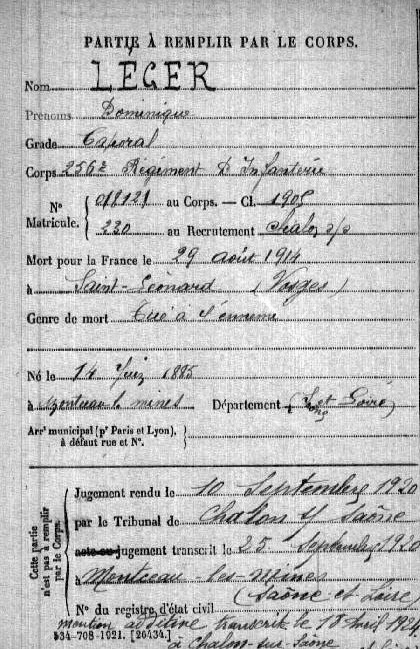 PARTIE À REMPLIR PAR LE CORPS.
Nom LÉGER
Prénoms Dominique
Grade Caporal
Corps 256e Régiment D'Infanterie
N° Matricule. 018121 au Corps. — Cl. 1905
230 au Recrutement Chalon s/s
Mort pour la France le 29 août 1914
à Saint-Léonard (Vosges)
Genre de mort Tué à l'ennemi
Né le 14 Juin 1885
à Montceau l. mines Département (S. et Loire)
Arrt municipal (pr Paris et Lyon), à défaut rue et N°.
Cette partie n'est pas à remplir par le Corps.
Jugement rendu le 10 Septembre 1920
par le Tribunal de Chalon s/ Saône
acte ou jugement transcrit le 25 Septembre 1920
à Montceau-les-Mines
(Saône et Loire)
N° du registre d'état civil
mention additive transcrite le 18 Avril 1924
534-708-1921. [26434.] à Chalon-sur-Saône